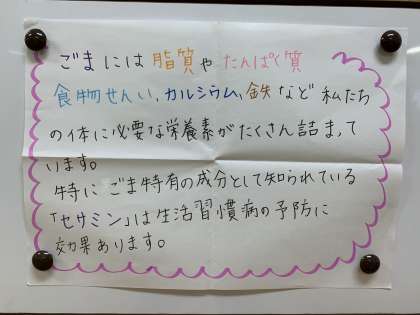 ごまには脂質やたんぱく質
食物せんい,カルシウム,鉄など私たち
の体に必要な栄養素がたくさん詰まって
います。
特にごま特有の成分として知られている
「セサミン」は生活習慣病の予防に
効果あります。